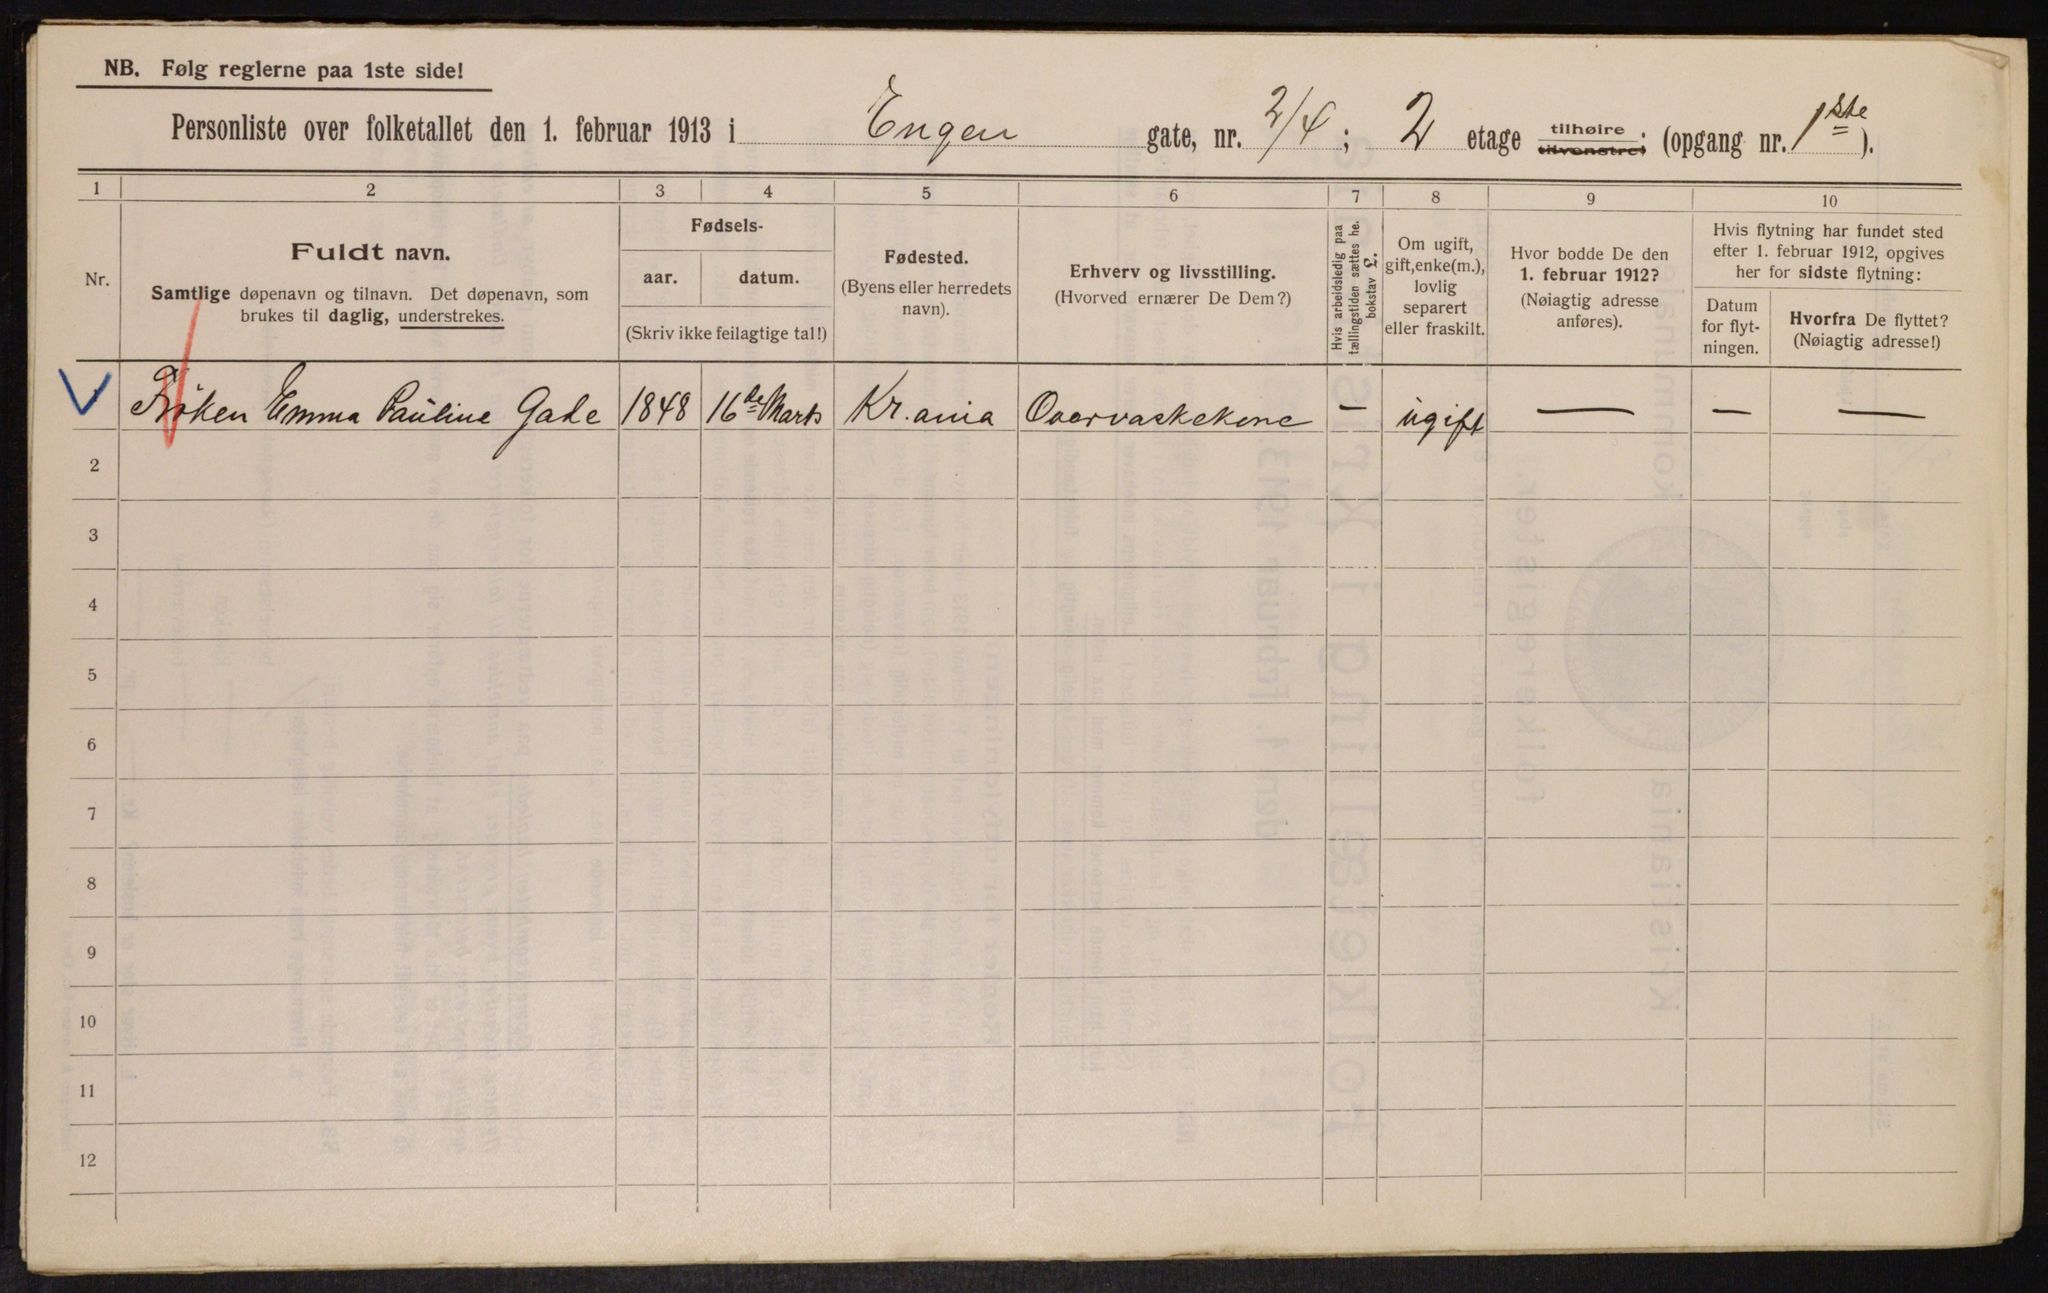 NB. Følg reglerne paa 1ste side!
Personliste over folketallet den 1. februar 1913 i Engen gate, nr. 2/4; 2 etage tilhøire tilvenstre; (opgang nr. 1ste).
1 2 3 4 5 6 7 8 9 10
Nr.
Fuldt navn.
Samtlige døpenavn og tilnavn. Det døpenavn, som
brukes til daglig, understrekes.
Fødsels-
aar. datum.
(Skriv ikke feilagtige tal!)
Fødested.
(Byens eller herredets
navn).
Erhverv og livsstilling.
(Hvorved ernærer De Dem?)
Hvis arbeidsledig paa
tællingstiden sættes he.
bokstav L.
Om ugift,
gift, enke(m.),
lovlig
separert
eller fraskilt.
Hvor bodde De den
1. februar 1912?
(Nøiagtig adresse
anføres).
Hvis flytning har fundet sted
efter 1. februar 1912, opgives
her for sidste flytning:
Datum
for flyt-
ningen.
Hvorfra De flyttet?
(Nøiagtig adresse!)
Frøken Emma Pauline Gade 1848 16de Marts Kr.ania Overvaskekone — ugift — — —
2
3
4
5
6
7
8
9
10
11
12